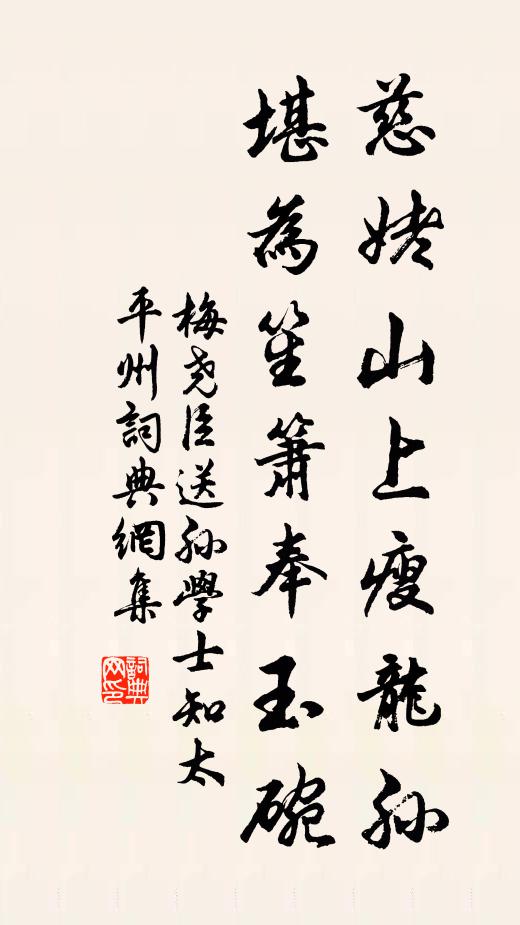 慈姥山上瘦龍孫
堪為笙簫奉玉碗
梅堯臣送孫學士知太
平州詞典網集
詞典網印